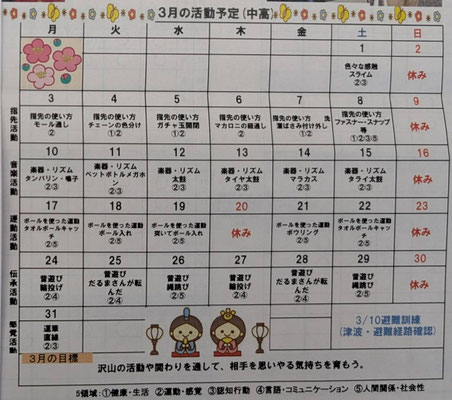 3月の活動予定(中高)
月 火 水 木 金 土 日
1 2
色々な感触
スライム
②③
休み
指先活動
3 4 5 6 7 8 9
指先の使い方
モール通し
②
指先の使い方
チェーンの色分け
①②
指先の使い方
ガチャ玉開閉
①②
指先の使い方
マカロニの紐通し
②
指先の使い方 洗
濯ばさみ付け外し
①②
指先の使い方
ファスナー・スナップ
等
①②③⑤
休み
音楽活動
10 11 12 13 14 15 16
楽器・リズム
タンバリン・鳴子
②③
楽器・リズム
ペットボトルメガホ
ン
②③
楽器・リズム
太鼓
②③
楽器・リズム
タイヤ太鼓
②③
楽器・リズム
マラカス
②③
楽器・リズム
タライ太鼓
②③
休み
運動活動
17 18 19 20 21 22 23
ボールを使った運動
タオルボールキャッ
チ
②⑤
ボールを使った運動
ボール入れ
②⑤
ボールを使った運動
突いてボール入れ
②⑤
休み
ボールを使った運動
ボウリング
②⑤
ボールを使った運動
タオルボールキャッチ
②⑤
休み
伝承活動
24 25 26 27 28 29 30
昔遊び
輪投げ
②④
昔遊び
だるまさんが転
んだ
②④
昔遊び
縄跳び
②⑤
昔遊び
輪投げ
②④
昔遊び
だるまさんが転
んだ
②④
昔遊び
縄跳び
②⑤
休み
感覚活動
31
運筆
直線
②③
3/10避難訓練
(津波・避難経路確認)
3月の目標
沢山の活動や関わりを通して、相手を思いやる気持ちを育もう。
5領域:①健康・生活 ②運動・感覚 ③認知行動 ④言語・コミュニケーション ⑤人間関係・社会性